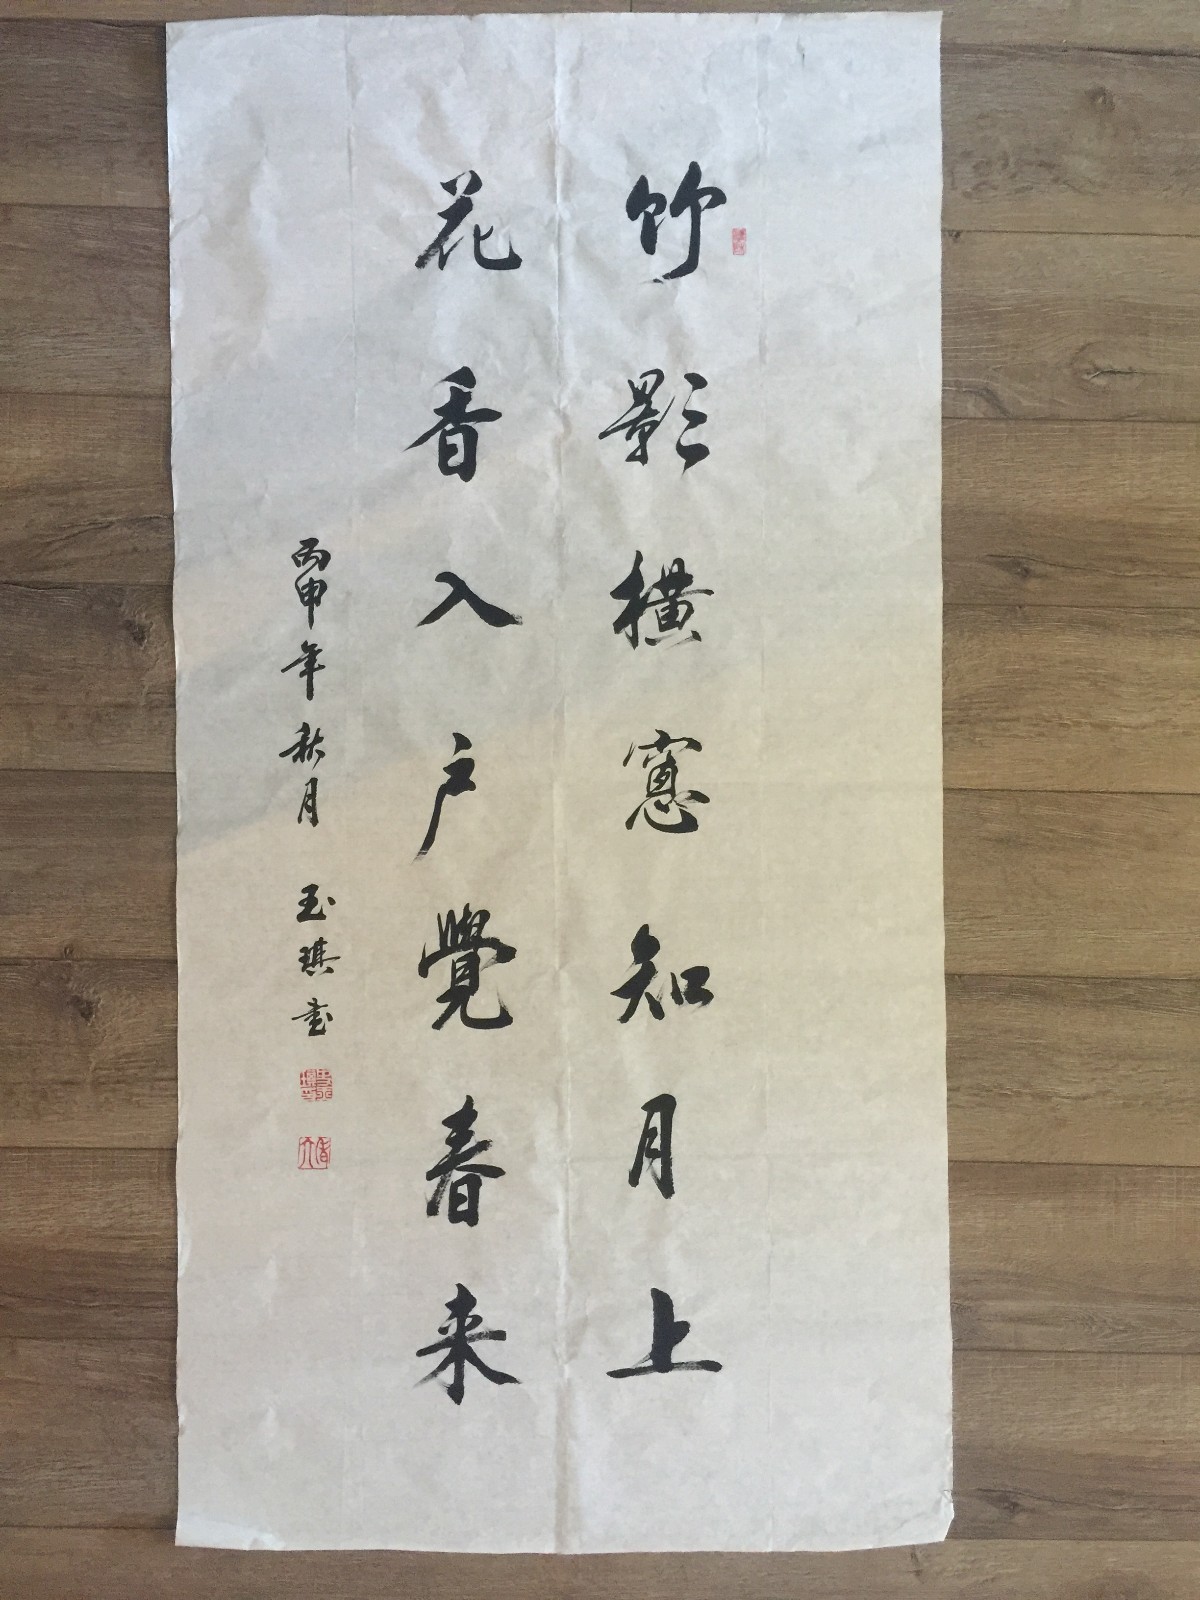 竹影横窻知月上
花香入戶覺春来
丙申年秋月 玉琪书